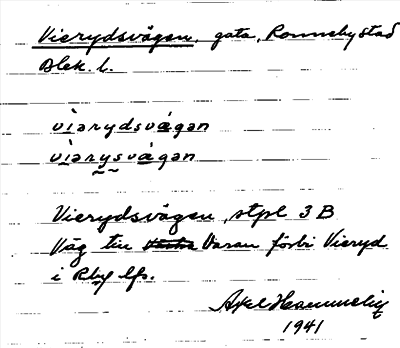 Vierydsvägen, gata, Ronneby stad
Blek. l.
vìərydsvágən
vìərysvágən
Vierydsvägen, stpl 3 B
Väg till Varan förbi Vieryd
i Rby lfs.
Axel
1941